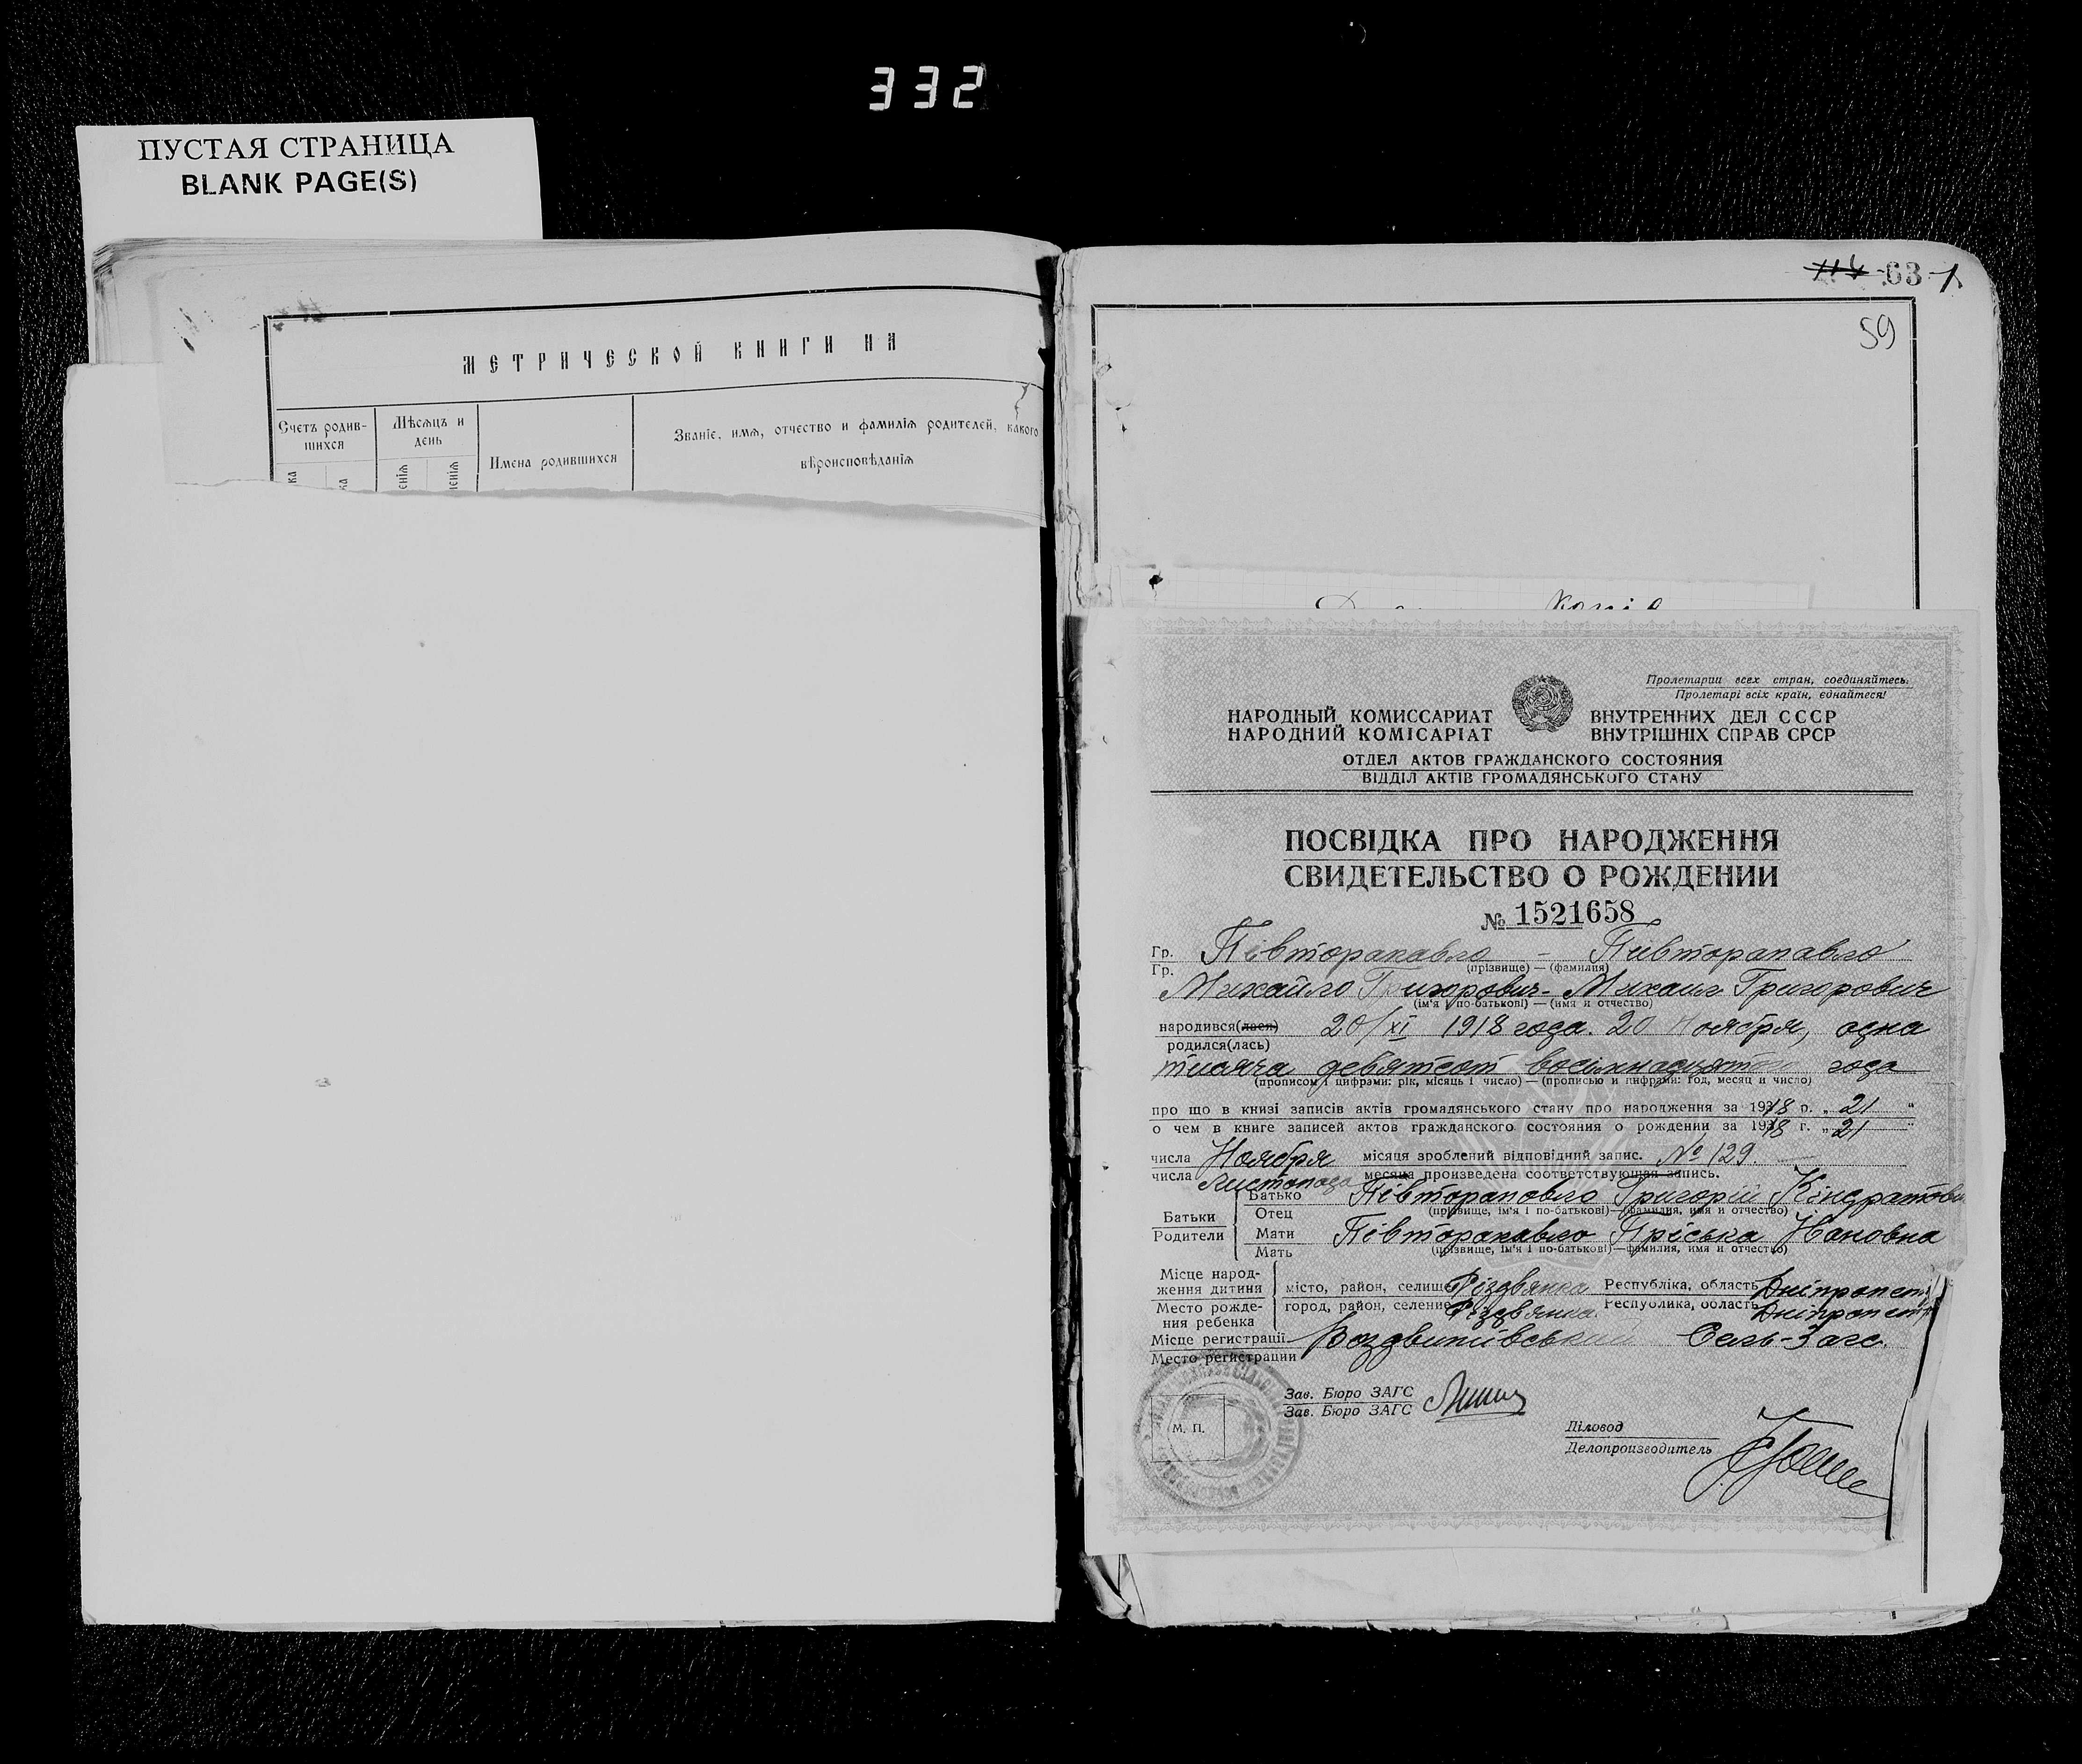 332
ПУСТАЯ СТРАНИЦА
BLANK PAGE(S)
МЕТРИЧЕСКОЙ КНИГИ НА
Счетъ родив-
шихся
Мѣсяцъ и
день
Имена родившихся
Званіе, имя, отчество и фамилія родителей, какого
вѣроисповѣданія
63
59
Пролетарии всех стран, соединяйтесь.
Пролетарі всіх країн, єднайтеся!
НАРОДНЫЙ КОМИССАРИАТ ВНУТРЕННИХ ДЕЛ СССР
НАРОДНИЙ КОМІСАРІАТ ВНУТРІШНІХ СПРАВ СРСР
ОТДЕЛ АКТОВ ГРАЖДАНСКОГО СОСТОЯНИЯ
ВІДДІЛ АКТІВ ГРОМАДЯНСЬКОГО СТАНУ
ПОСВІДКА ПРО НАРОДЖЕННЯ
СВИДЕТЕЛЬСТВО О РОЖДЕНИИ
№ 1521658
Гр. Півторапавло - Пивторапавло
Гр. (прізвище) — (фамилия)
Михайло Григорович - Михаил Григорович
(ім'я і по-батькові) — (имя и отчество)
народився(лася) 20/XI 1918 года. 20 Ноября, одна
родился(лась)
тисяча девятсот восімнадцятого года
(прописом і цифрами: рік, місяць і число) — (прописью и цифрами: год, месяц и число)
про що в книзі записів актів громадянського стану про народження за 1918 р. „21“
о чем в книге записей актов гражданского состояния о рождении за 1918 г. „21“
числа Ноября місяця зроблений відповідний запис. № 129.
числа Листопада месяца произведена соответствующая запись.
Батько Півторапавло Григорій Кіндратови
Отец (прізвище, ім'я і по-батькові)—(фамилия, имя и отчество)
Батьки
Родители
Мати Півторапавло Пріська Ивановна
Мать (прізвище, ім'я і по-батькові)—фамилия, имя и отчество)
Місце народ-
ження дитини місто, район, селище Різдвянка Республіка, область Дніпропет
Место рожде-
ния ребенка город, район, селение Різдвянка Республика, область Дніпропет
Місце регистрації Воздвиньівський Сель-Загс.
Место регистрации
Зав. Бюро ЗАГС
Зав. Бюро ЗАГС
М. П.
Діловод
Делопроизводитель